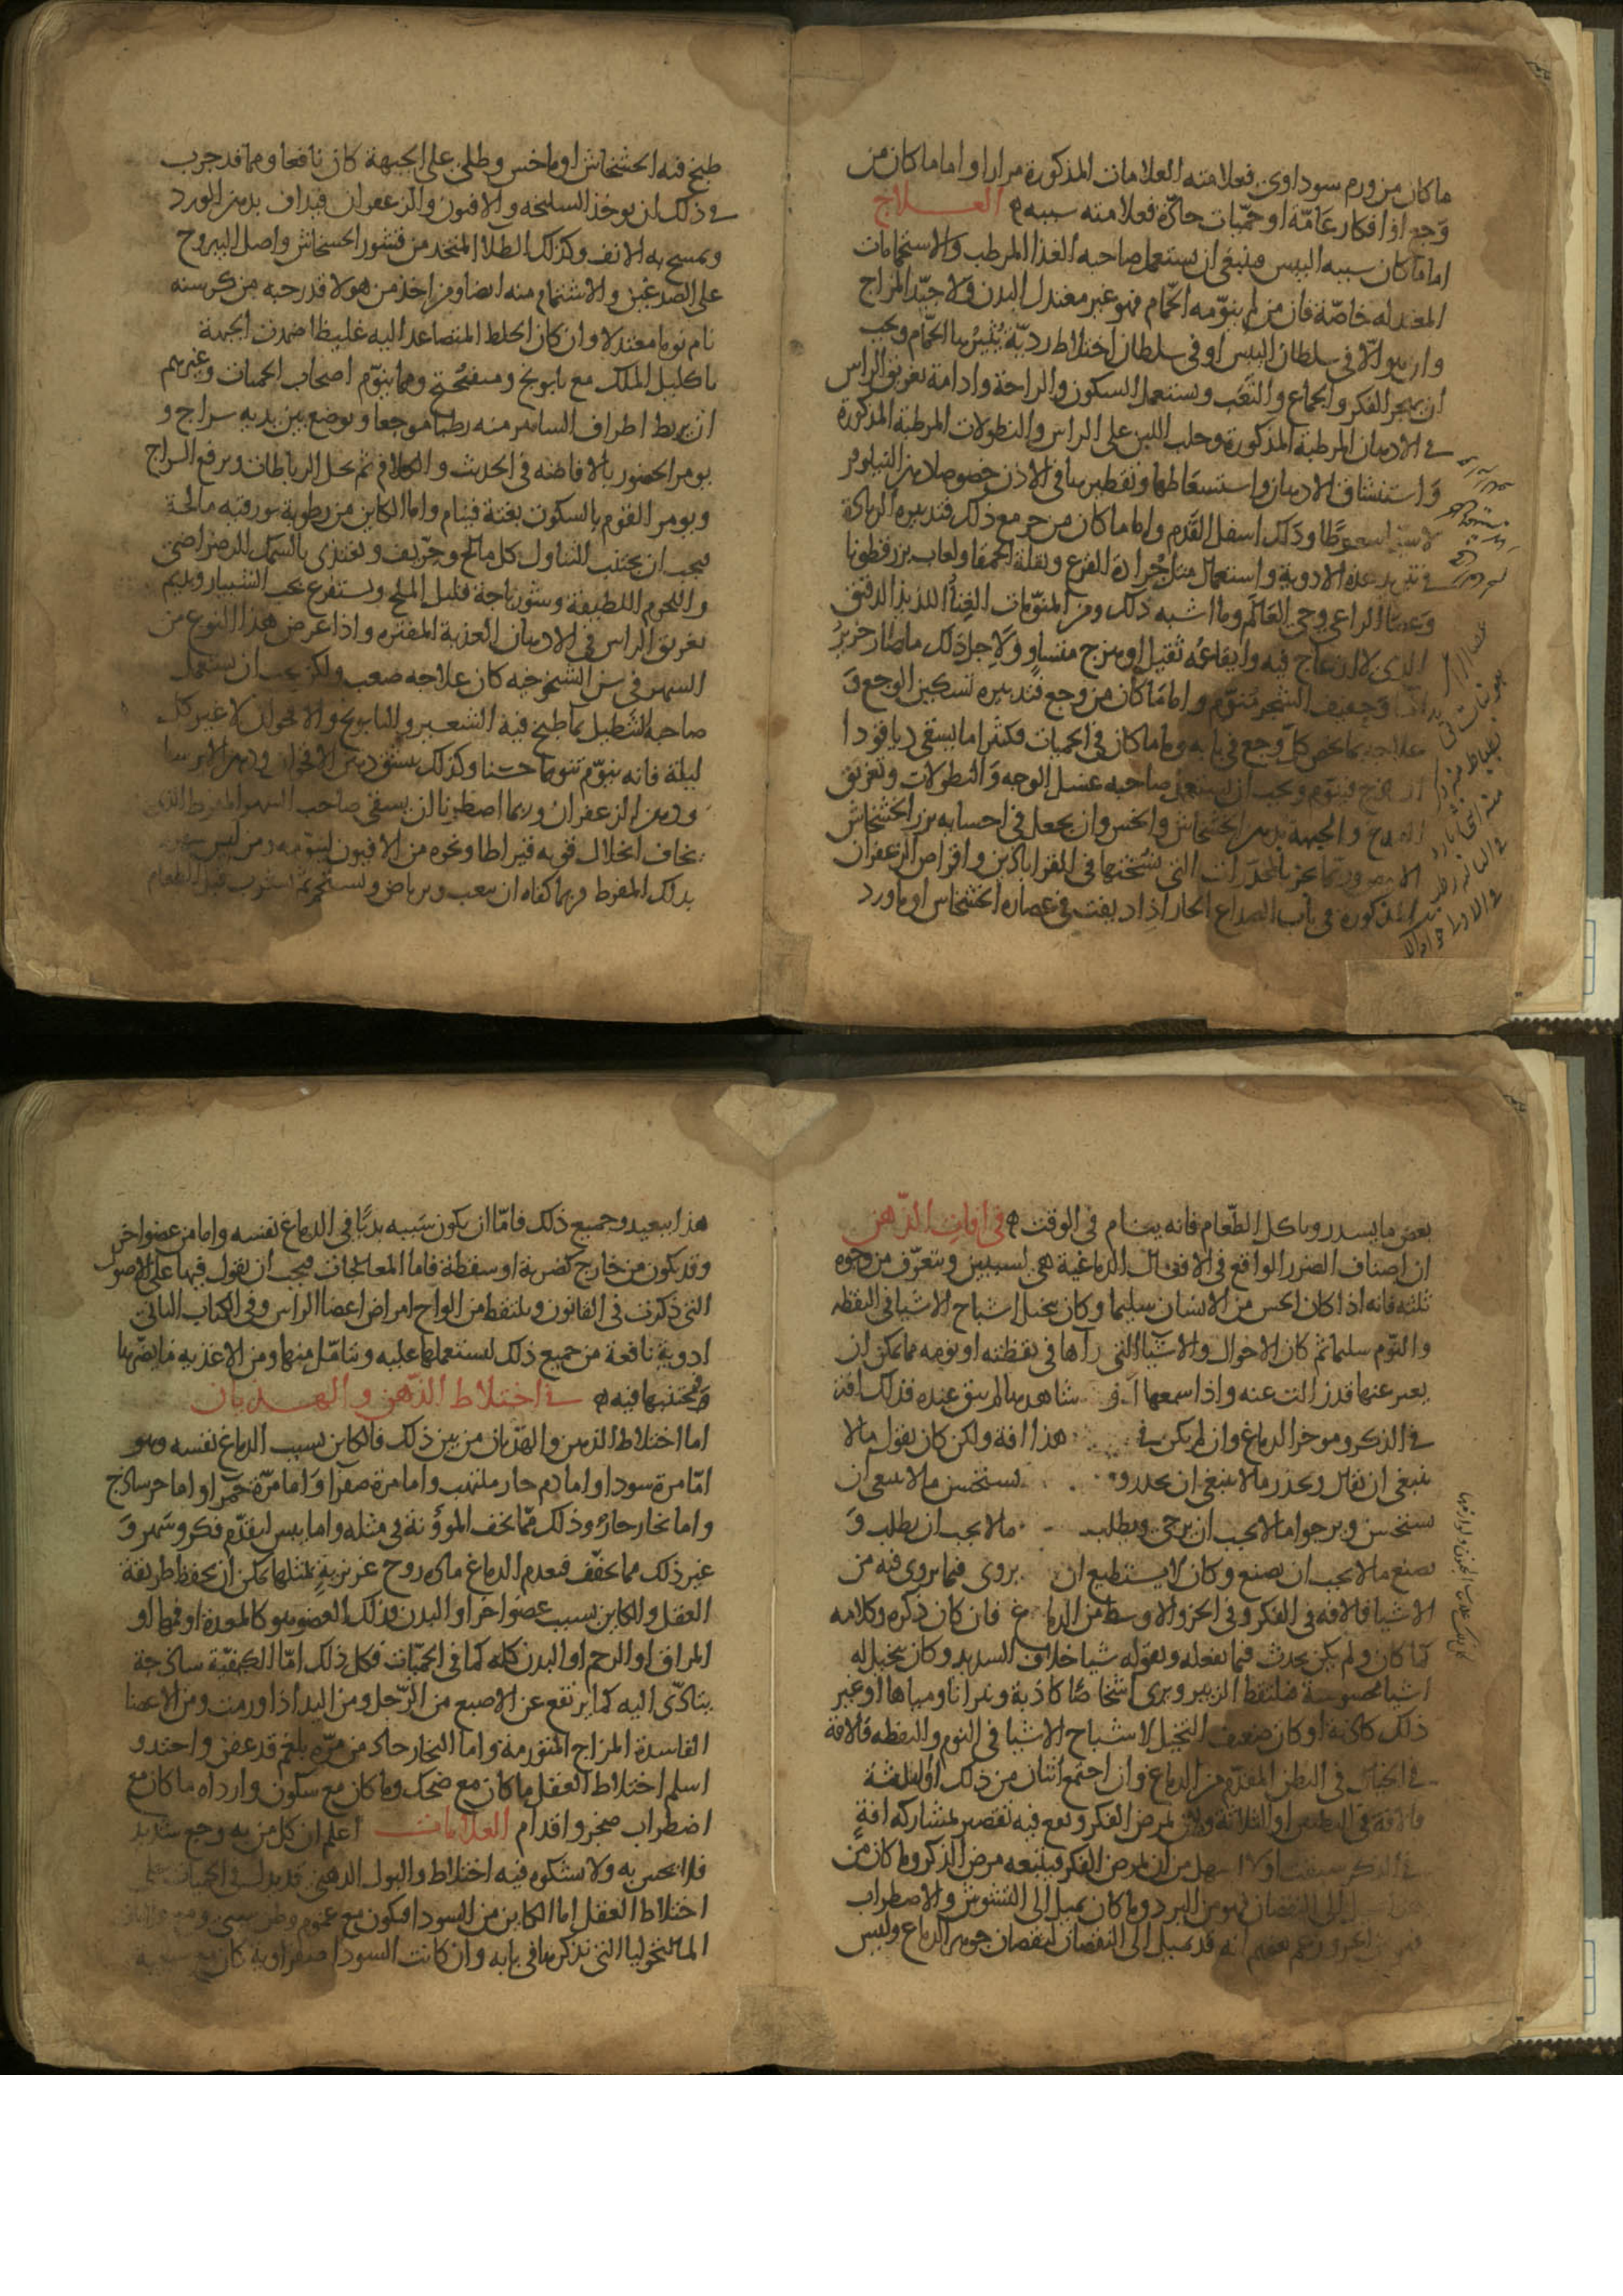 ما كان من ورم سوداوى فعلامته العلامات المذكورة مرارا واما ما كان من
وجع او افكار غامّة او حمّيات حادّة فعلامته سببه ه العــلاج
اما ما كان سببه اليبس فينبغى ان يستعمل صاحبه الغذا المرطب والاستحمامات
المعتدله خاصّة فان من لم ينوّمه الحمّام فهو غير معتدل البدن ولا جيّد المزاج
وان هو الّا فى سلطان اليبس او فى سلطان اخلاط رديّة يُثيرُها الحمّام ويجب
ان يهجر الفكر والجماع والتعَب ويستعمل السكون والراحة وادامة تغريق الراس
فى الادهان المرطبة المذكورة وحلب اللبن على الراس والنطولات المرطبة المذكورة
وَاستنشاق الادهان واستسعَاطها وتقطيرها فى الاذن خصوصا دهن النيلوفر
لا سيّما سعوطًا ودَلك اسفل القَدم واما ما كان من حر مع ذلك فتدبيره الزيادة
فى تبريد هذه الادوية واستعمال مثل جُرادة القرع وبقلة الحمقا ولعاب بزرقطونا
وَعصَا الراعى وحى العَالم وما اشبه ذلك ومن المنوّمات الغِنأُ اللذيذ الرقيق
الذى لا ازعاج فيه وايقاعُه ثقيل او هزج متساوٍ ولاِجل ذلك ما صَار خرير
وَحفيف الشجر مُنوّم واما ما كان من وجع فتدبيره تسكين الوجع وَ
علاجه بما يخص كلّ وجع فى بابه واما ما كان فى الحميات فكثيرا ما يسقى دياقودا
فينوّم ويجب ان يستعمل صاحبه غسل الوجه وَالنطولات وتغريق
والجبهة بدهن الخشخاش والخس وان يجعل فى احسايه بزر الخشخاش
وربّما بخر بالمخدّرات التى نسختها فى القراباذين واقراص الزعفران
المذكورة فى باب الصداع الحار اذا ديفت فى عصارة الخشخاش او ماورد
طبخ فيه الخشخاش او ما خس وطلى على الجبهة كان نافعا ومما قد جرب
فى ذلك ان يوخذ السليخه والافيون والزعفران فيداف بدهن الورد
ويمسح به الانف وكذلك الطلا المتخذ من قشور الخشخاش واصل اليبروح
على الصدغين والاشتمام منه ايضا ومن اخذ من هولا قدر حبه من كرسنه
نام نوما معتدلا وان كان الخلط المتصاعد اليه غليظا ضمدت الجبهة
باكليل الملك مع بابونج وميفختج ومما ينوّم اصحاب الحميات وغيرهم
ان يربط اطراف الساهر منه ربطا موجعا ويوضع بين يديه سراج و
يومر الحضور بالافاضه فى الحديث والكلام ثم تحل الرباطات ويرفع السراج
ويومر القوم بالسكوت بغتة فينام واما الكاين من رطوبة بورقيه مالحة
فيجب ان يجتنب تناول كل مالح وحرّيف ويغتذى بالسمك الرضراضى
واللحوم اللطيفة وشورباجة قليل الملح ويستفرغ بحب الشبيار ويديم
تغريق الراس فى الادهان العذبة المفتره واذا عرض هذا النوع من
السهر فى سن الشيخوخيه كان علاجه صعب ولكن يجب ان يستعمل
صاحبه التنطيل بما طبخ فيه الشعير والبابونج والاقحوان لا غير كل
ليلة فانه ينوّم تنويما حسَنا وكذلك يستنشق دهن الاقحوان ودهن الايرسا
ودهن الزعفران وربما اضطررنا ان يسقى صاحب السهر المفرط الذى
يخاف انحلال قوته قيراطا ونحوه من الافيون لينوّمه ومن ليس سهره
بذلك المفرط فربما كفاه ان يتعب ويرياض ويستحم ثم يشرب قبل الطعام
بعض ما يسدر وياكل الطّعام فانه ينام فى الوقت ه فى افات الذّهن
ان اصناف الضرر الواقع فى الافعال الدماغية هى لسببين ويتعرّف من وجوه
ثلثه فانه اذا كان الحس من الانسان سليما وكان يتخيل اشباح الاشيا فى اليقظه
والنوم سليما ثم كان الاحوال والاشيا التى رآها فى يقظته او نومه مما يمكن ان
يعبر عنها قد زالت عنه واذا سمعها او شاهدها لم يبق عنده فذلك افة
فى الذكر وموخر الدماغ وان لم يكن فى هذا افة ولكن كان يقول ما لا
ينبغى ان يقال ويحذر ما لا ينبغى ان يحذر و يستحسن ما لا ينبغى ان
يستحسن ويرجوا ما لا يجب ان يرجى ويطلب ما لا يجب ان يطلب وَ
يصنع ما لا يجب ان يصنع وكان لا يستطيع ان يروى فيما يروى فيه من
الاشيا فالافه فى الفكر وفى الجزو الاوسط من الدماغ فان كان ذكره وكلامه
كما كان ولم يكن يحدث فيما يفعله ويقوله شيا خلاف السديد وكان يتخيل له
اشيا محسوسة ويلتقط الزيبر ويرى اشخاصًا كاذبة ونيرانا ومياها او غير
ذلك كاذبة او كان ضعيف التخيل لاشباح الاشيا فى النوم واليقظه فالافة
فى الخيال فى البطن المقدّم من الدماغ وان اجتمع اثنان من ذلك او ثلثة
فالافة فى البطنين او الثلاثة ولان يمرض الفكر ويقع فيه تقصير لمشاركه افةٍ
فى الذكر سبقت اولا اسهل من ان يمرض الفكر فيتبعه مرض الذكر وما كان من
الى النقصان فهو من البرد وما كان يميل الى التشوش والاضطراب
فهو من الحر وزعم بعضهم انه قد يميل الى النقصان لنقصان جوهر الدماغ وليس
هذا ببعيد وجميع ذلك فامّا ان يكون سَببه بديًا فى الدماغ نفسه واما من عضو اخر
وقد يكون من خارج كضربة او سقطة فاما المعالجات فيجب ان يعول فيها على الاصول
التى ذكرت فى القانون ويلتقط من الواح امراض اعضا الراس وفى الكتاب الثانى
ادوية نافعة من جميع ذلك لتستعملها عليه وتتامّل منها ومن الاغذيه ما يضرّها
وَتجتنبها فيه ه فى اختلاط الذّهن والهــذيان
اما اختلاط الذهن والهذيان من بين ذلك فالكاين بسبب الدماغ نفسه وهو
امّا مرة سودا واما دم حار ملتهب واما مرة صفرا وَاما مرّة حَمرا واما حر ساذج
واما بخار حارٌ وذلك ممّا تخف المؤونة فى مثله واما يبس لتقدّم فكر وسَهر وَ
غير ذلك مما يجفّف فيعدم الدماغ مادة روح غريزيةٍ بمثلها يمكن ان يحفظ طريقة
العقل والكاين بسبب عضو اخر او البدن وذلك العضو هو كالمعدة او فمها او
المراق او الرحم او البدن كله كما فى الحميّات فكل ذلك امّا لكيفيّة ساذجة
يتادّى اليه كما يرتفع عن الاصبع من الرّجل ومن اليد اذا ورمت ومن الاعضا
الفاسدة المزاج المتورمة واما البخار حار من مرّه بلغم قد عفن واحتد و
اسلم اختلاط العقل ما كان مع ضحك وما كان مع سكون واردأه ما كان مع
اضطراب وضجر واقدام العلامات اعلم ان كل من به وجع شديد
فلا يحس به ولا يشكوه فبه اختلاط والبول الدهنى قد يدل فى الحميات على
اختلاط العقل اما الكاين من السودا فيكون مع غموم وظن سيى ومع
المالنخوليا التى نذكرها فى بابه وان كانت السودا صفراوية كان مع سبعية